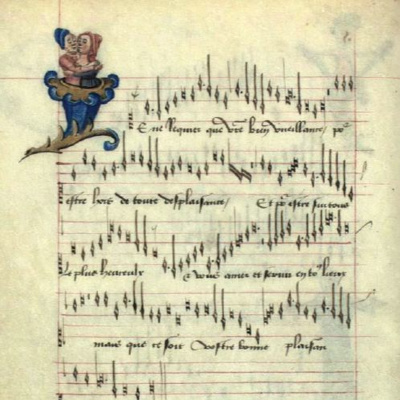 E ne Requier que vre bien vueillance / por
estre hors de toute desplaisance / Et por estre sur tous
Le plus heureulx & vous amer et servir en tos lieux
mais que ce soit vostre bonne plaisan